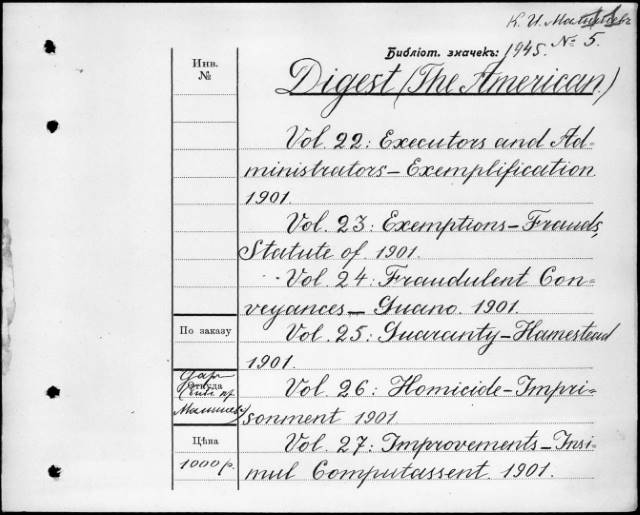 К. И.
Библіот. значекъ: 1945. № 5.
Инв.
№
Digest (The American)
Vol. 22: Executors and Ad-
ministrators – Exemplification
1901.
Vol. 23: Exemptions – Frauds,
Statute of. 1901.
Vol. 24: Fraudulent Con-
veyances – Guano. 1901.
По заказу
Vol. 25: Guaranty – Hamestead
1901.
Даръ
Откуда
Vol. 26: Homicide – Impri-
sonment 1901.
Цѣна
1000 р.
Vol. 27: Improvements – Insi-
mul Computassent. 1901.